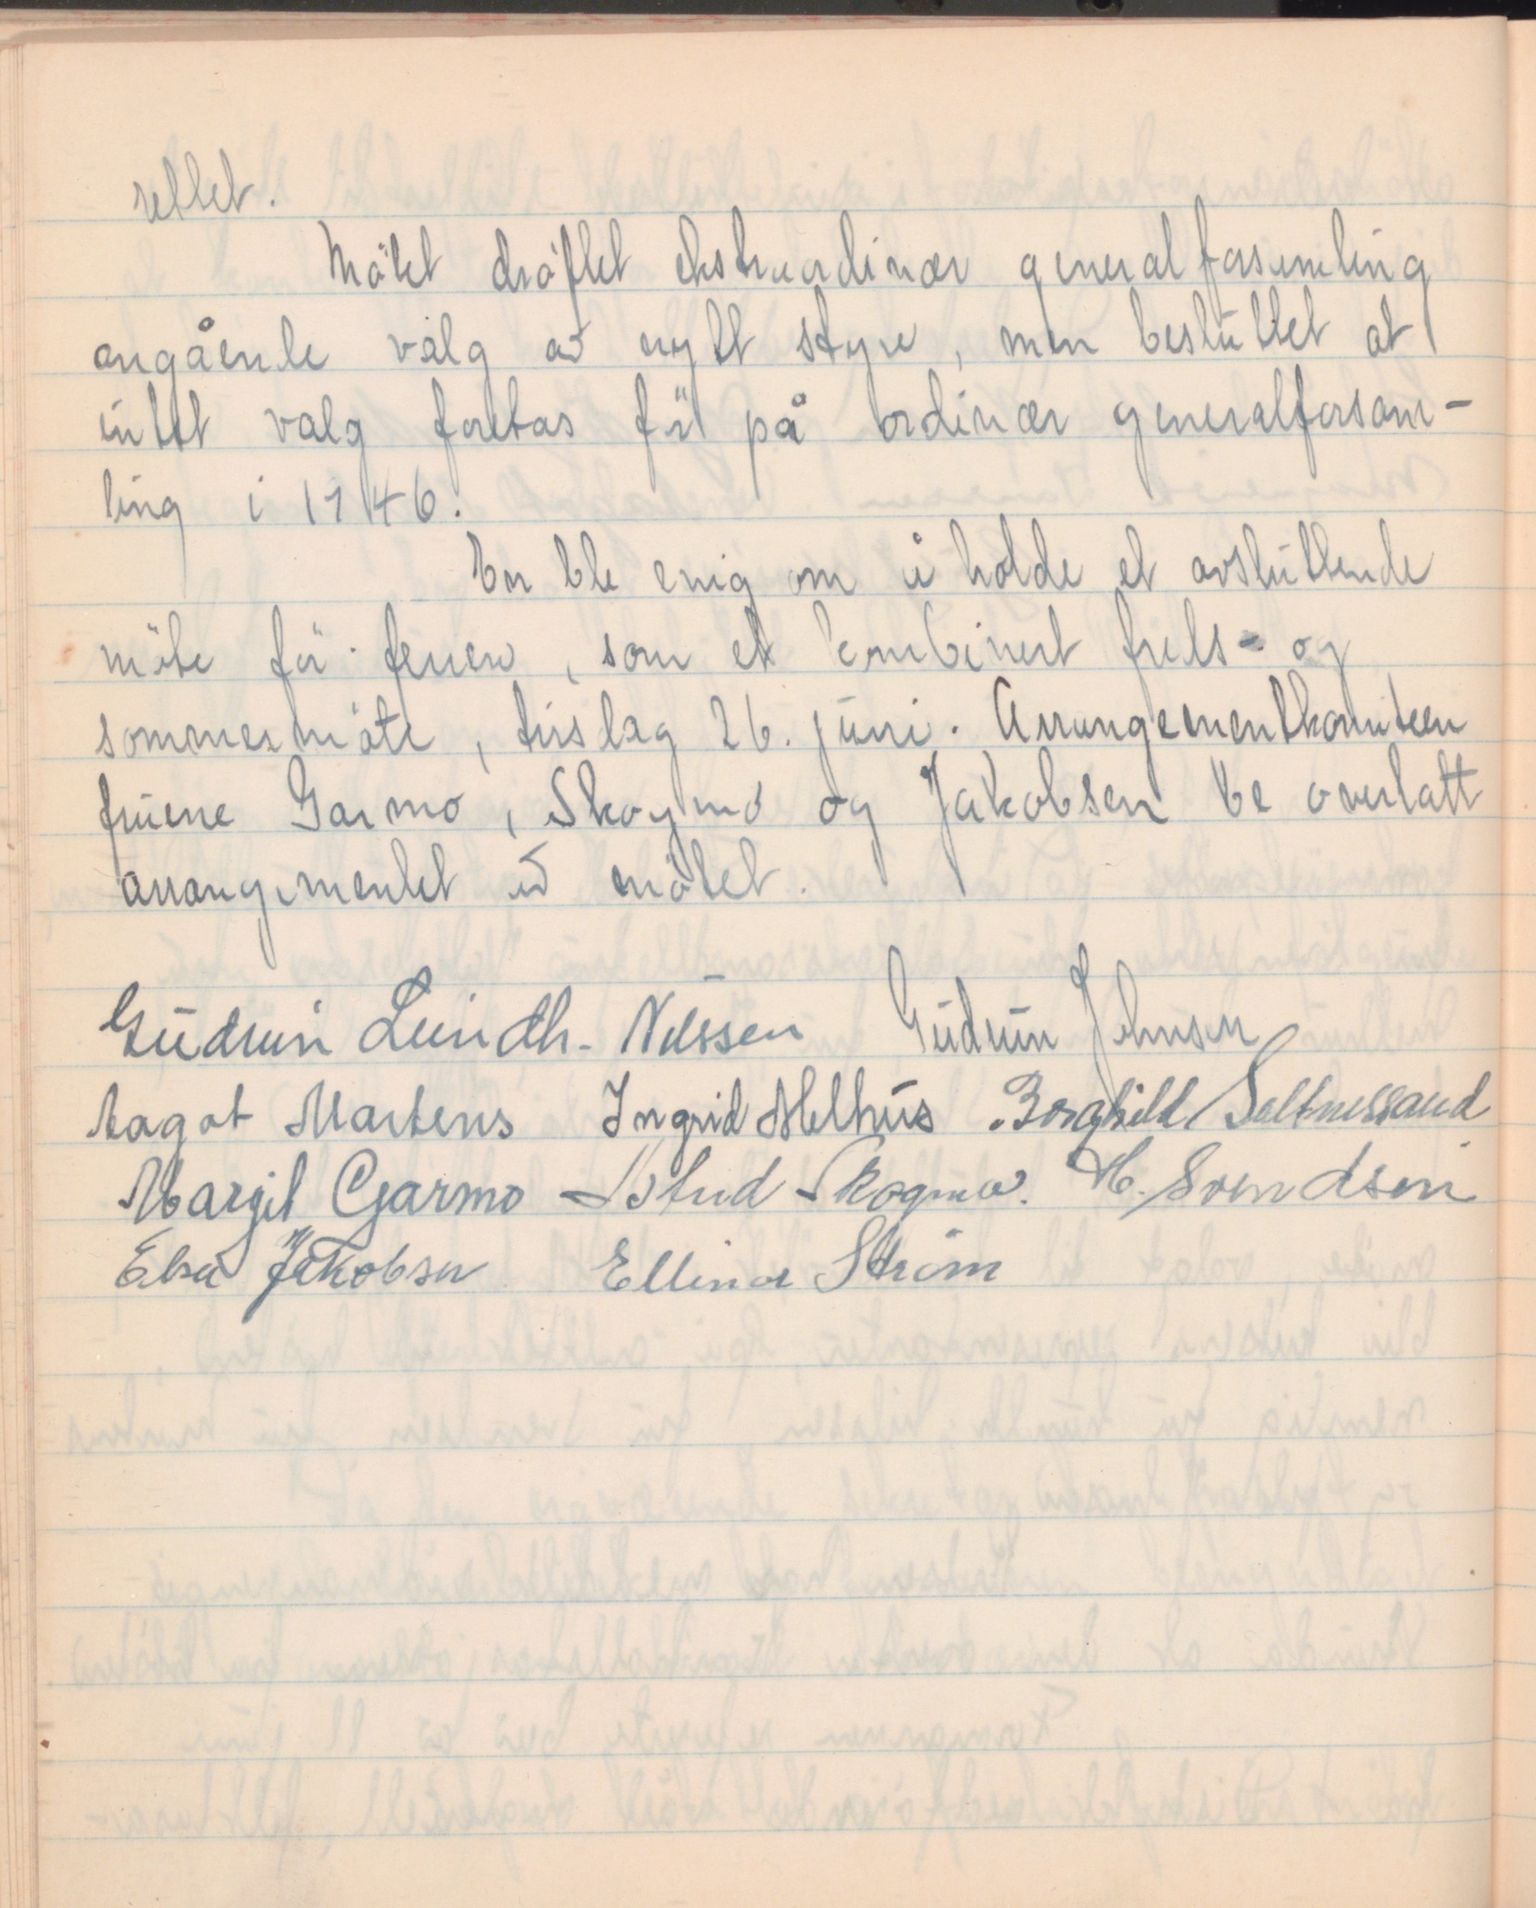 rettet.
Møtet drøftet ekstraordinær generalforsamling
angående valg av nytt styre, men besluttet at
intet valg foretas før på ordinær generalforsam-
ling i 1946.
En ble enig om å holde et avsluttende
møte før ferien, som et kombinert freds- og
sommermøte, tirsdag 26. juni. Arrangementkomiteen
fruene Garmo, Skogmo og Jakobsen ble overlatt
arrangementet av møtet.
Gudrun Lundh-Nilssen Gudrun Johnsen
Aagot Martens Ingrid Melhus Borghild Saltnessand
Margit Garmo Astrid Skogmo. M. Svendsen
Elsa Jakobsen Ellinor Strøm